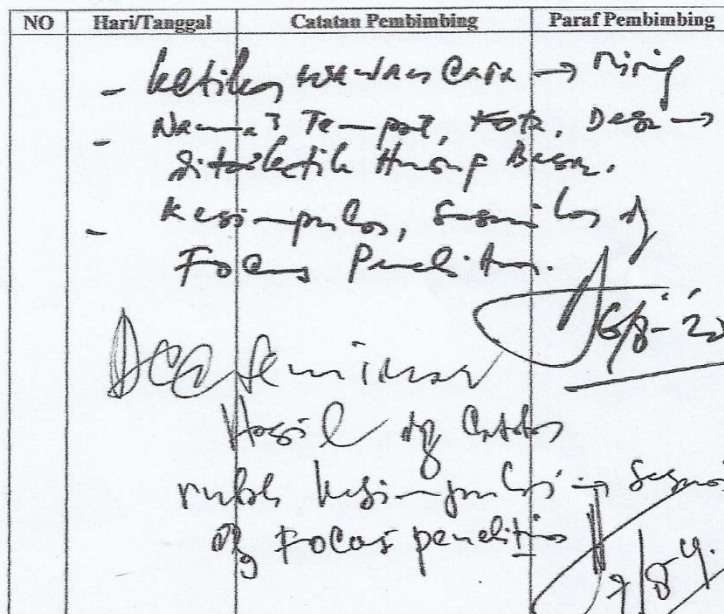 NO Hari/Tanggal Catatan Pembimbing Paraf Pembimbing
- ketikan wawancara → Miring
- Nama2 Tempat, Kota, Desa →
ditulis/ketik Huruf Besar.
- Kesimpulan, sesuaikan dg
Focus Penelitian.
6/8-'20
Acc Seminar
Hasil dg Catatan
rubah kesimpulan → sesuai
dg Focus penelitian